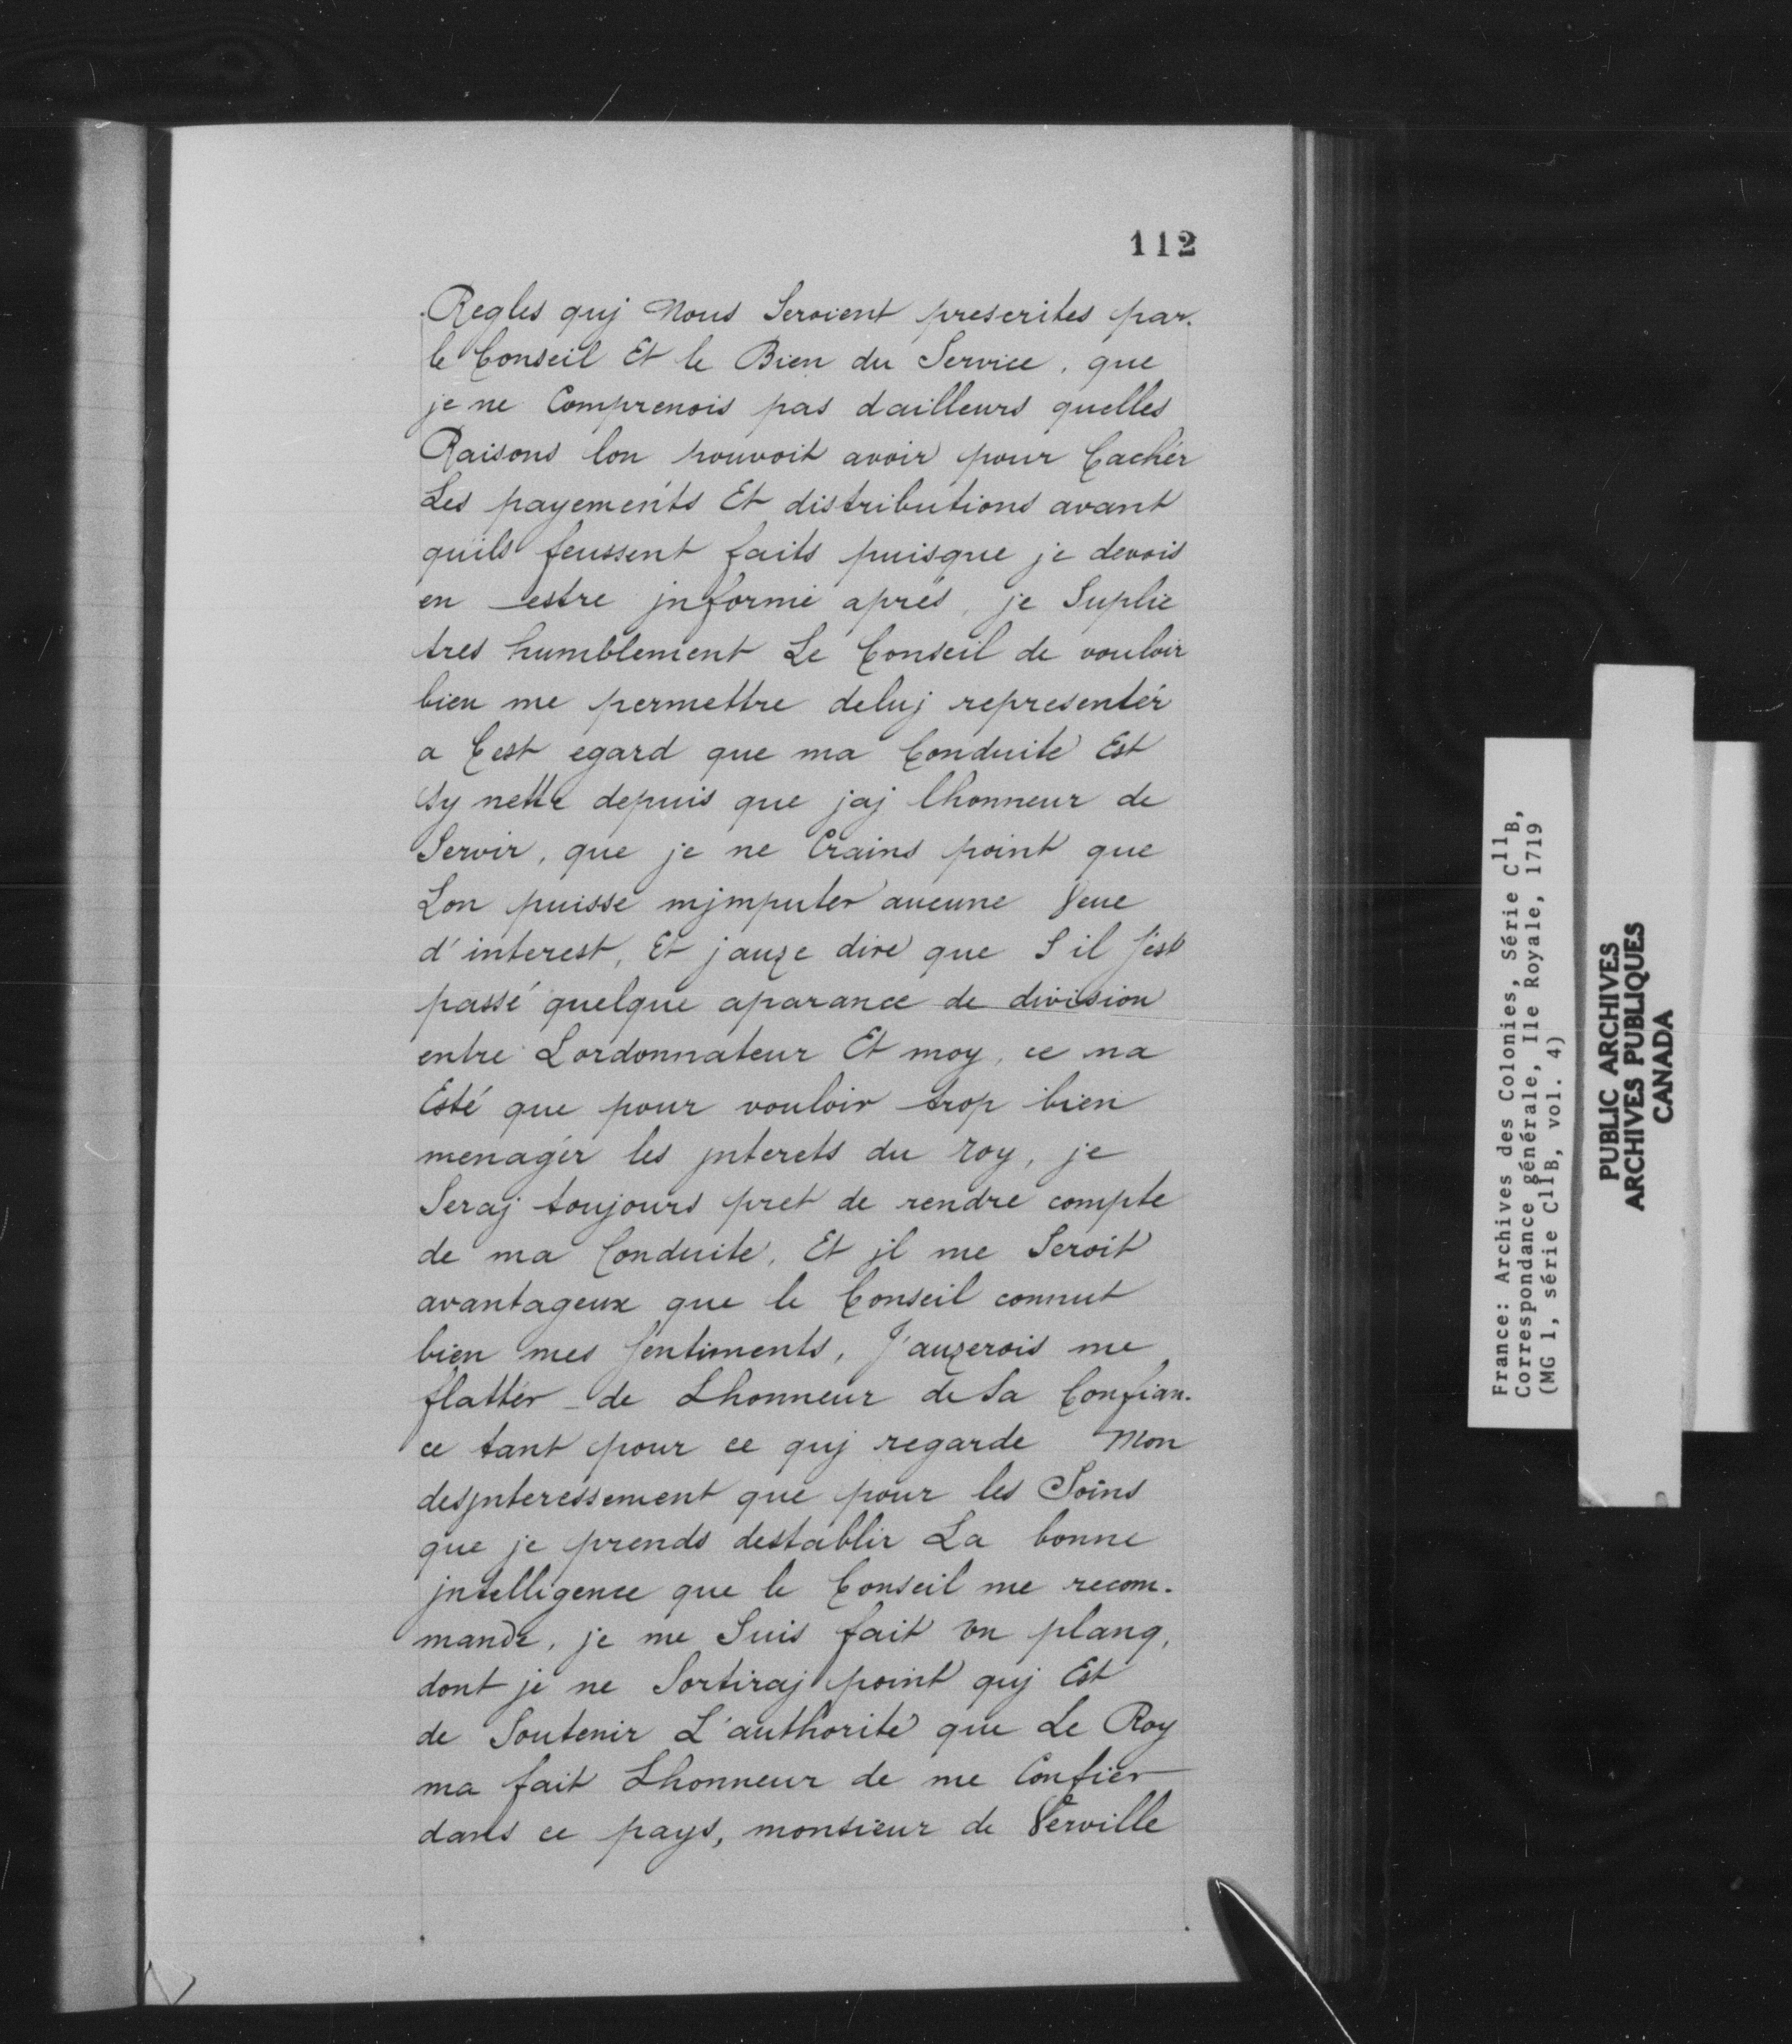 112
Regles quj Nous Seroient prescrites par.
le Conseil Et le Bien du Service, que
je ne Comprenois pas dailleurs quelles
Raisons lon pouvoit avoir pour Cachér
Les payements Et distributions avant
quils feussent faits puisque je devois
en estre jnformé aprés, je Suplie
tres humblement Le Conseil de vouloir
bien me permettre deluj representér
a Cest egard que ma Conduite Est
Sy nette depuis que jaj lhonneur de
Servir, que je ne Crains point que
Lon puisse mjmputer aucune Veue
d'interest, Et jauze dire que S il s'est
passé quelque aparance de division
entre Lordonnateur Et moy, ce na
Esté que pour vouloir trop bien
menagér les jnterets du roy, je
Seraj toujours pret de rendre compte
de ma Conduite, Et jl me Seroit
avantageux que le Conseil connut
bien mes Sentiments, J'auzerois me
flattér de Lhonneur de Sa Confian.
ce tant pour ce quj regarde Mon
desjnteressement que pour les Soins
que je prends destablir La bonne
jntelligence que le Conseil me recom.
mande, je me Suis fait vn plang,
dont je ne Sortiraj point quj Est
de Soutenir L'authorité que Le Roy
ma fait Lhonneur de me Confier
dans ce pays, monsieur de Verville
France: Archives des Colonies, Série C11B,
Correspondance générale, Ile Royale, 1719
(MG 1, série C11B, vol. 4)
PUBLIC ARCHIVES
ARCHIVES PUBLIQUES
CANADA